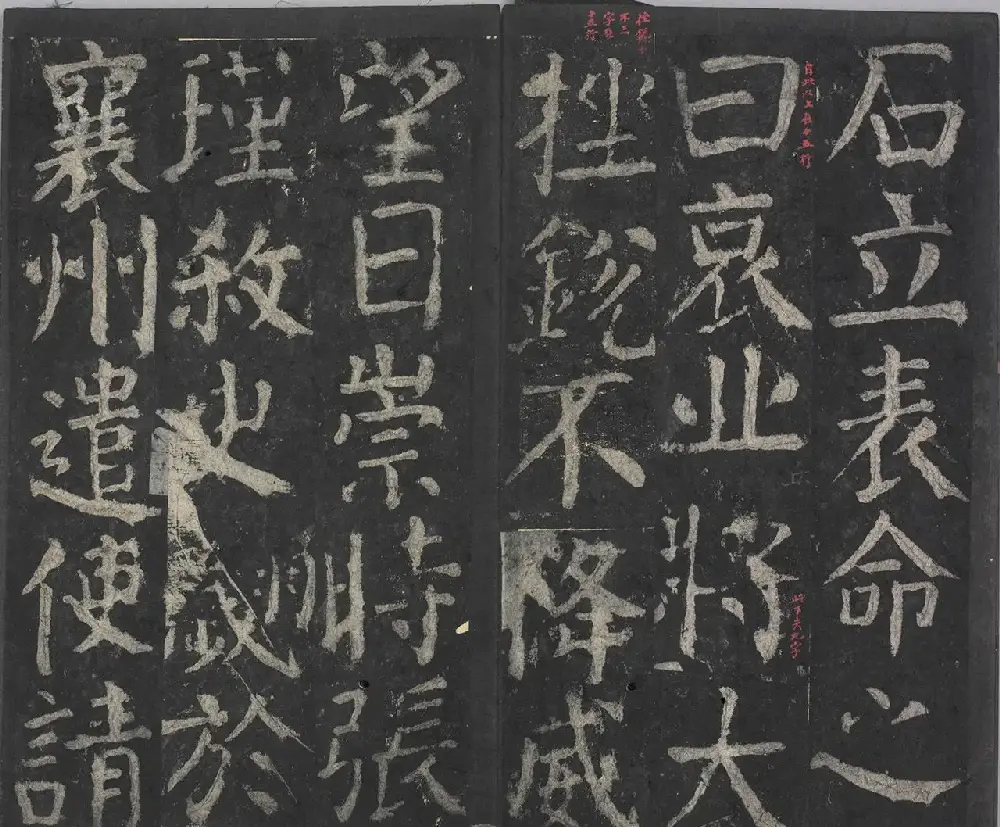 石立表命之
曰哀丘將大
挫銳不降威
望日崇時張
瑾殺史翽於
襄州遣使請